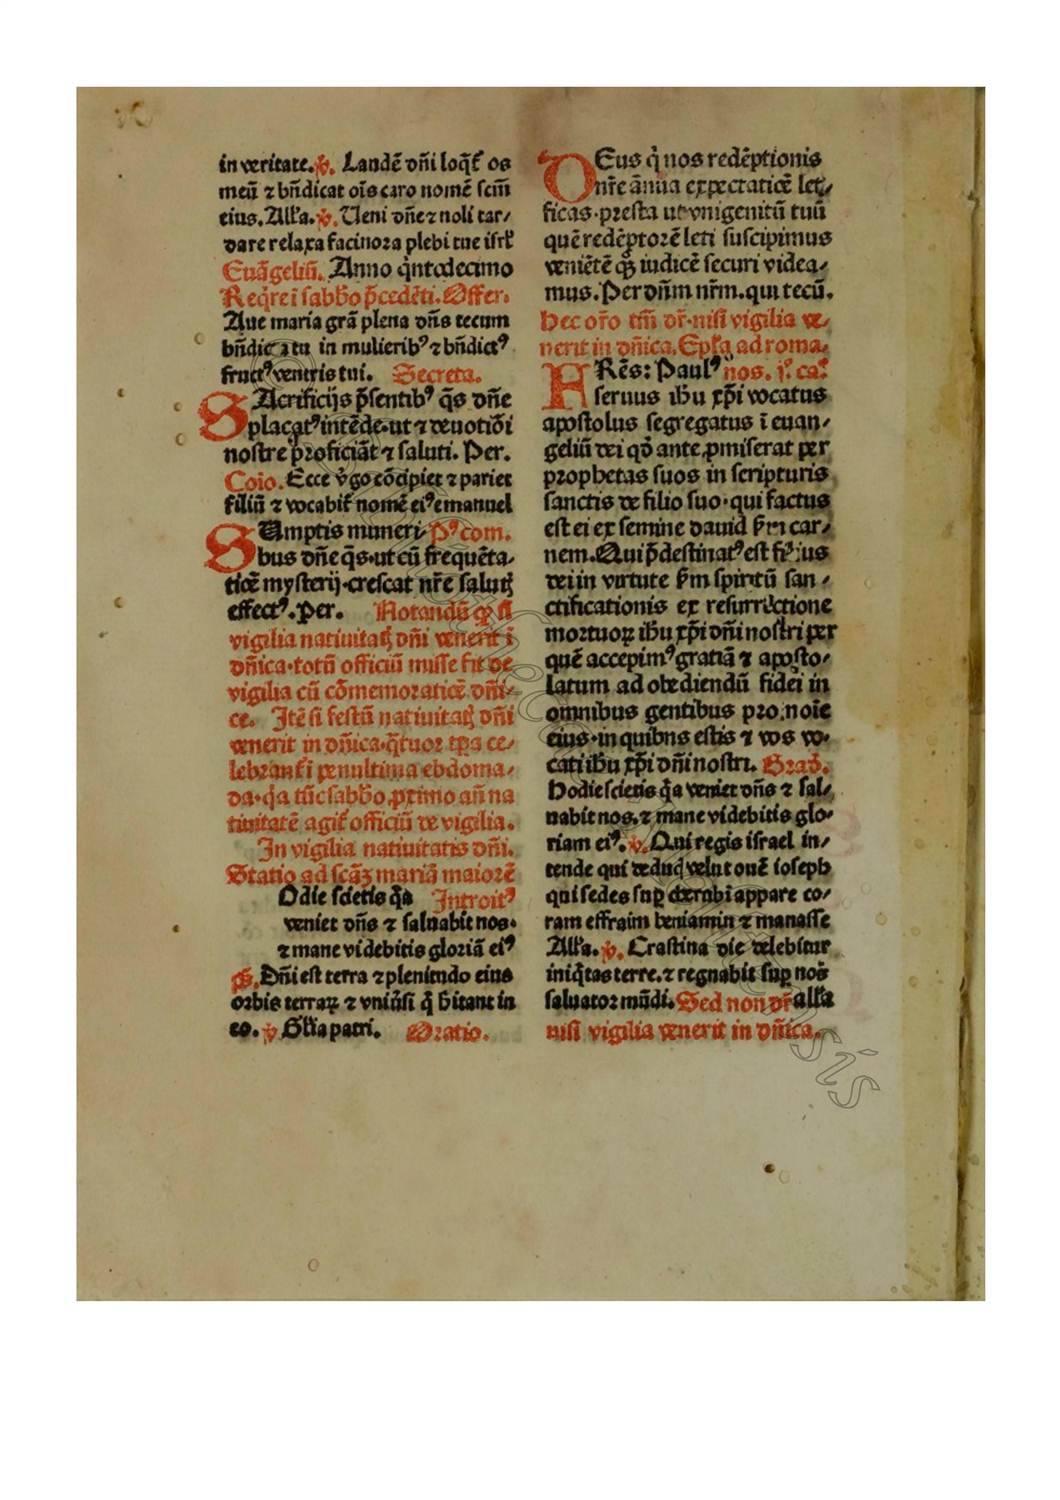 in veritate. v̄. Laudē dn̄i loq̄t̄ os
meū ⁊ bn̄dicat oīs caro nomē scm̄
eius. Alľa. v̄. Ueni dn̄e ⁊ noli tar/
dare relaxa facinora plebi tue isrľ
Euāgeliū. Anno q̇ntodecimo
Req̇re ī sabbo p̄cedēti. Offer.
Aue maria grā plena dn̄s tecum
bn̄dicta tu in mulieribꝰ ⁊ bn̄dictꝰ
fructꝰ ventris tui. Secreta.
SAcrificijs p̄sentibꝰ q̄s dn̄e
placatꝰ intēde·ut ⁊ deuotiōi
nostre proficiāt ⁊ saluti. Per.
Coīo. Ecce v̇go cōcipiet ⁊ pariet
filiū ⁊ vocabit̄ nomē eiꝰ emanuel
SUmptis muneri- Pꝰ com.
bus dn̄e q̄s·ut cū frequēta-
tiōe mysterij·crescat nr̄e salutꝭ
effectꝰ. Per. Notandū qꝫ si
vigilia natiuitatꝭ dn̄i venerit ī
dn̄ica·totū officiū misse fit de
vigilia cū cōmemoratiōe dn̄i-
ce. Itē si festū natiuitatꝭ dn̄i
venerit in dn̄ica·q̄tuor tꝑa ce/
lebrant̄ ī penultima ebdoma/
da·q̇a tūc sabbo ꝓximo an̄ na
tiuitatē agit̄ officiū de vigilia.
In vigilia natiuitatis dn̄i.
Statio ad scāꝫ mariā maiorē
Odie scietis q̇a Introitꝰ
veniet dn̄s ⁊ saluabit nos·
⁊ mane videbitis gloriā eiꝰ
ps̄. Dn̄i est terra ⁊ plenitudo eius
orbis terraꝝ ⁊ vniūsi q̇ hitant in
eo. v̄ Glīa patri. Oratio.
DEus q̇ nos redēptionis
nr̄e ānua expectatiōe leti/
ficas·presta ut vnigenitū tuū
quē redēptorē leti suscipimus
veniētē qꝫ iudicē securi videa/
mus. Per dn̄m nr̄m. qui tecū.
Hec or̄o tm̄ dr̄·nisi vigilia ve/
nerit in dn̄ica. Epľa ad roma/
FRēs: Paulꝰ nos. j°. ca°.
seruus ihū xp̄i vocatus
apostolus segregatus ī euan/
geliū dei qd̄ ante ꝓmiserat per
prophetas suos in scripturis
sanctis de filio suo·qui factus
est ei ex semine dauid ẜm car/
nem. Qui p̄destinatꝰ est filius
dei in virtute ẜm spiritū san/
ctificationis ex resurrectione
mortuoꝝ ihū xp̄i dn̄i nostri per
quē accepimꝰ gratiā ⁊ aposto/
latum ad obediendū fidei in
omnibus gentibus pro noīe
eius·in quibus estis ⁊ vos vo-
cati ihū xp̄i dn̄i nostri. Grad̄.
Hodie scietis q̇a veniet dn̄s ⁊ sal/
uabit nos. ⁊ mane videbitis glo-
riam eiꝰ. v̄. Qui regis israel in/
tende qui deducꝭ velut ouē ioseph
qui sedes suꝑ cherubī appare co/
ram effraim beniamin ⁊ manasse
Alľa. v̄. Crastina die delebitur
iniq̇tas terre. ⁊ regnabit suꝑ nos
saluator mūdi. Sed non dr̄ alľa
nisi vigilia venerit in dn̄ica.